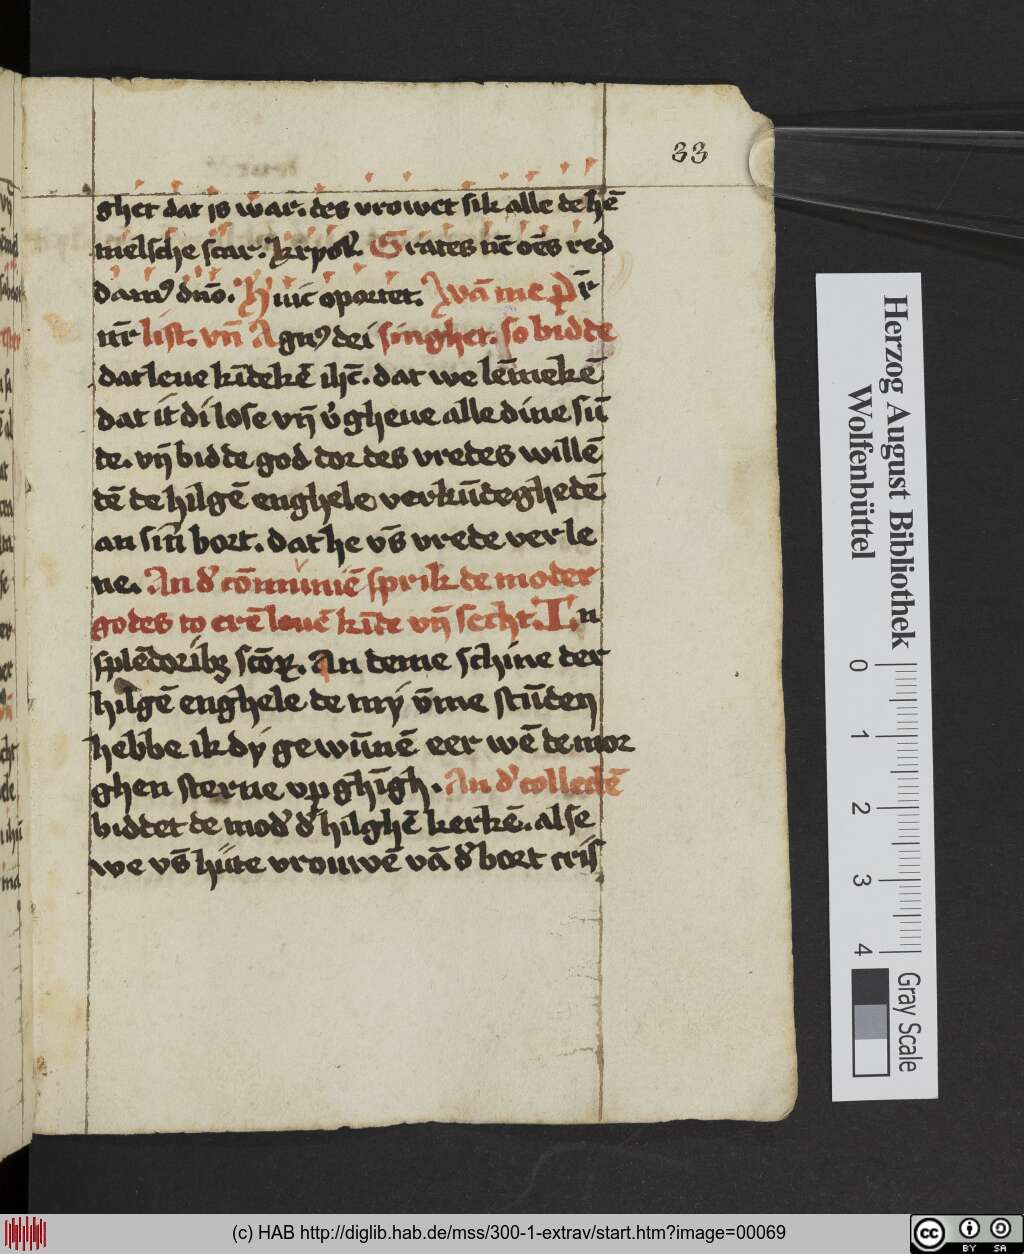 33
ghet dat is war. des vrowet sik alle de hē
melsche scar. krpol. Grates nc̄ oēs red
dam⁹ dn̄o. Huic oportet. Wā me p̄ r̄
nr̄ list. vn̄ Agn⁹ dei singhet. so bidde
dat leue kīdekē ih̄c. dat we lēmekē
dat it di lose vn̄ v̓gheue alle dine sū
de. vn̄ bidde god dor des vredes willē
dē de hilgē enghele verkūdeghedē
an sin̄ bort. dat he vs̄ vrede verle
ne. An d̓ cōmuniē sprik de moder
godes to erē leuē kīde vn̄ secht. In
splēdoribꝫ scōꝝ. An deme schine der
hilgē enghele de my v̄me stūden
hebbe ik dy gewūnē eer wē de mor
ghen sterne vp ghīgh. An d̓ collectē
biddet de mod̓ d̓ hilghē kerkē. alse
we vs̄ hute vrouwē vā d̓ bort cris
Herzog August Bibliothek
Wolfenbüttel
0 1 2 3 4
Gray Scale
(c) HAB http://diglib.hab.de/mss/300-1-extrav/start.htm?image=00069
cc BY SA